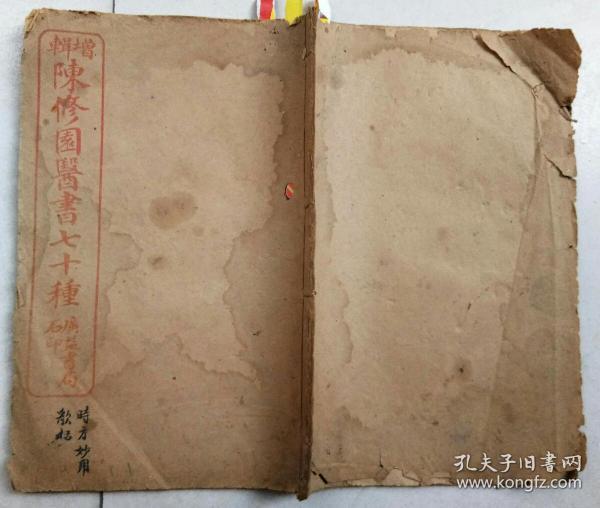 增輯
陳修園醫書七十種
廣益書局
石印
時方妙用
歌括
孔夫子旧书网
www.kongfz.com